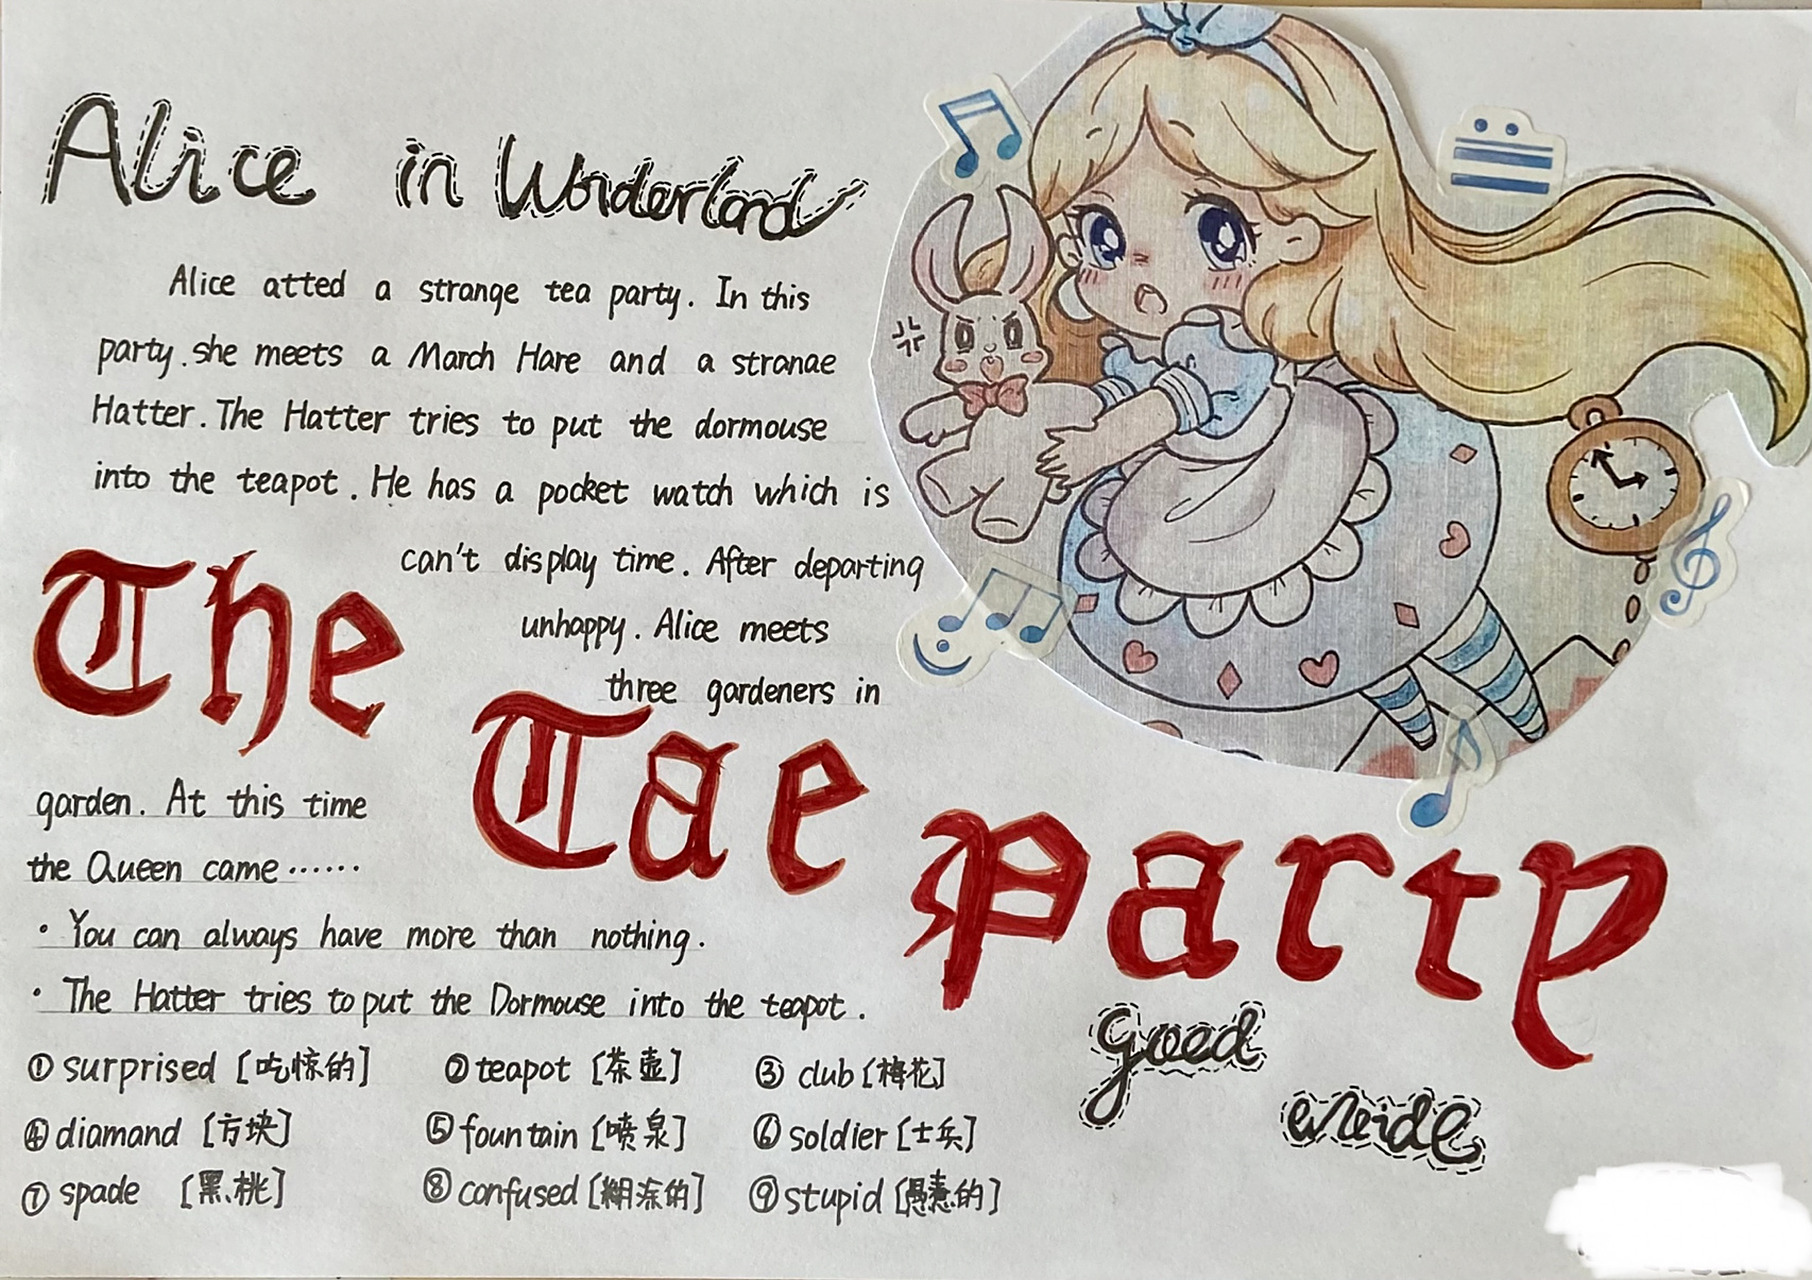 Alice in Wonderland
Alice atted a strange tea party. In this
party.she meets a March Hare and a stranae
Hatter. The Hatter tries to put the dormouse
into the teapot. He has a pocket watch which is
can't display time. After departing
unhappy. Alice meets
three gardeners in
The Tae Party
garden. At this time
the Queen came……
· You can always have more than nothing.
· The Hatter tries to put the Dormouse into the teapot.
① surprised [吃惊的] ② teapot [茶壶] ③ club [梅花]
④ diamand [方块] ⑤ fountain [喷泉] ⑥ soldier [士兵]
⑦ spade [黑桃] ⑧ confused [糊涂的] ⑨ stupid [愚蠢的]
good